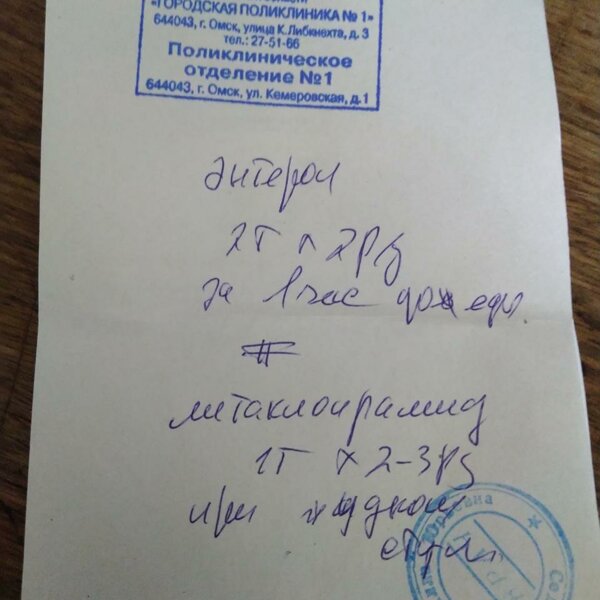 «ГОРОДСКАЯ ПОЛИКЛИНИКА № 1»
644043, г. Омск, улица К.Либкнехта, д. 3
тел.: 27-51-66
Поликлиническое
отделение №1
644043, г. Омск, ул. Кемеровская, д.1
энтерол
2т х 2рд
за 1 час до еды
метаклопрамид
1т х 2-3рд
при жидком
стуле